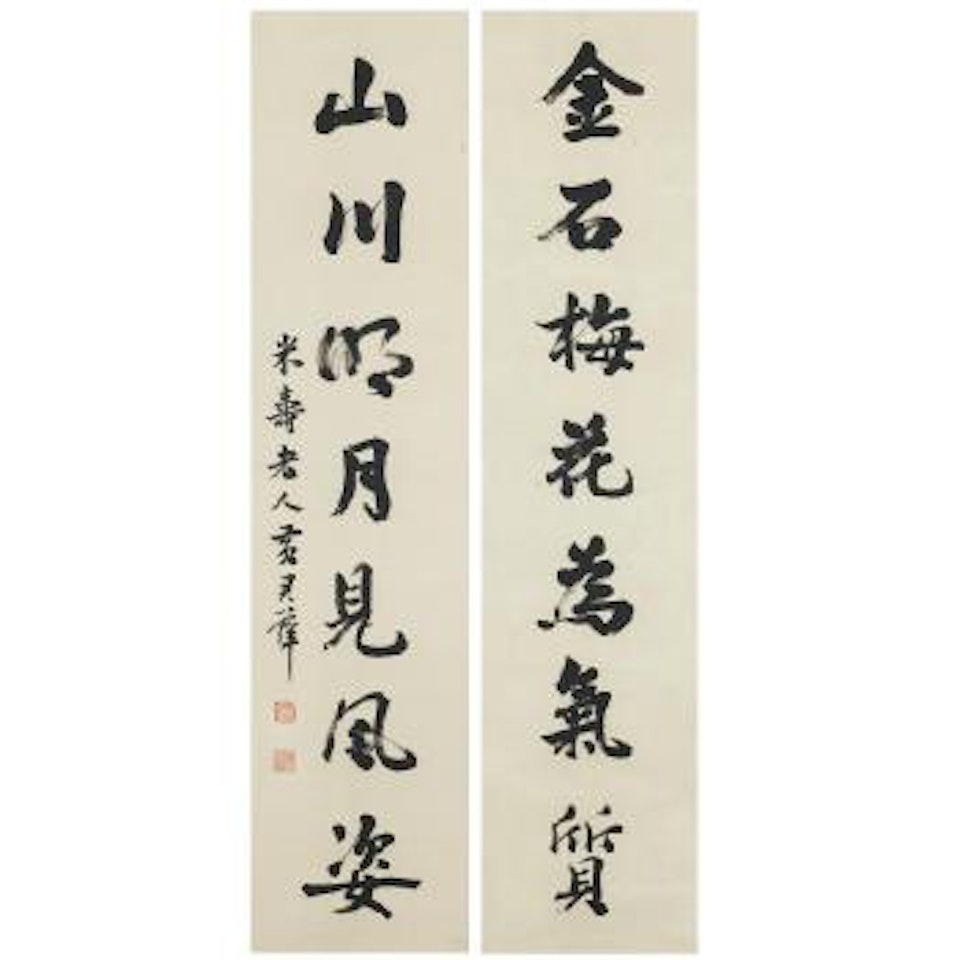 金石梅花為氣質
山川明月見風姿
米壽老人君璧